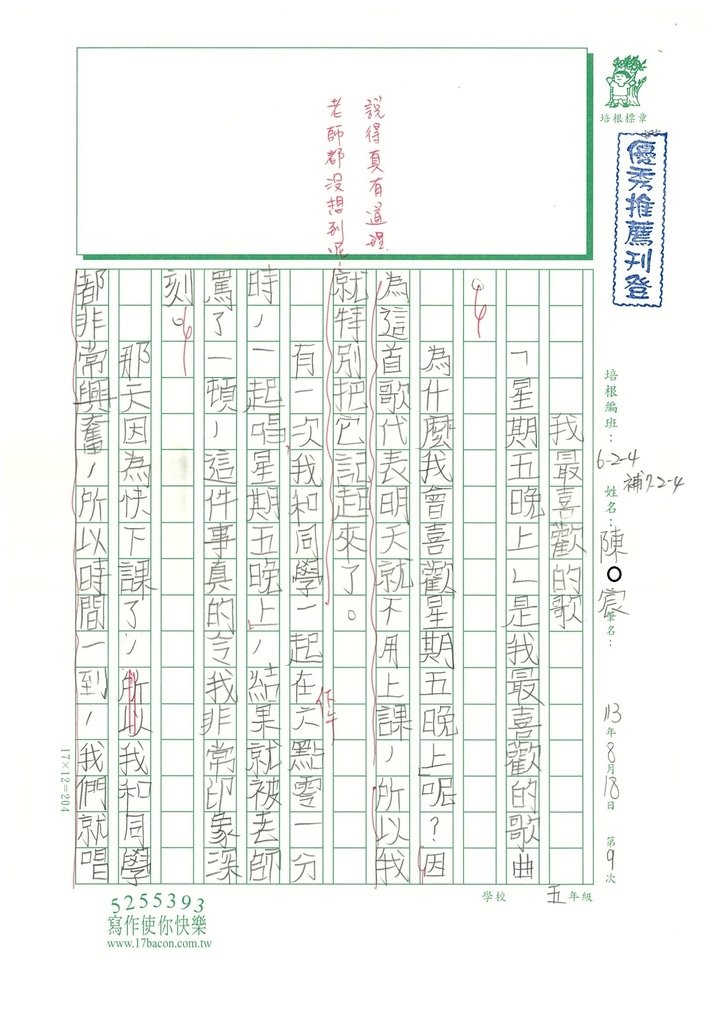 培根標章
優秀推薦刊登
培根編班：6-2-4
補7.2-4
姓名：陳○宸
筆名：
113年8月18日 第9次
學校 五年級
說得真有道理，
老師都沒想到呢！
我最喜歡的歌
「星期五晚上」是我最喜歡的歌曲
為什麼我會喜歡星期五晚上呢？因
為這首歌代表明天就不用上課，所以我
就特別把它記起來了。
有一次我和同學一起在六點零一分
下午
時，一起唱星期五晚上，結果就被老師
罵了一頓，這件事真的令我非常印象深
刻。
那天因為快下課了，所以我和同學
都非常興奮，所以時間一到，我們就唱
17×12=204
5255393
寫作使你快樂
www.17bacon.com.tw